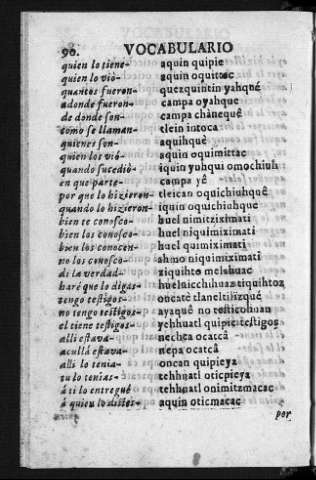 90. VOCABULARIO
quien lo tiene- aquin quipie
quien lo viò- aquin oquittac
quantos fueron- quezquintin yahqué
adonde fueron- campa oyahque
de donde son- campa chanequê
como se llaman- tlein intoca
quienes son- aquihquê
quien los viò- aquin oquimittac
quando sucediò- iquin yuhqui omochiuh
en que parte- campa yê
por que lo hizieron- tleican oquichiuhquê
quando lo hizieron- iquin oquichiuhquê
bien te conosco- huel nimitziximati
bien los conosco- huel niquimiximati
bien los conocen- huel quimiximati
no los conosco- ahmo niquimiximati
di la verdad- xiquihto melahuac
haré que lo digas- huelnicchihuas tiquihtos
tengo testigos- oncatê tlaneltilizquê
no tengo testigos- ayaquê no testicohuan
el tiene testigos- yehhuatl quipie testigos
alli estava- nechca ocatcâ
acullá estava- nepa ocatcâ
alli lo tenia- oncan quipieya
tu lo tenias- tehhuatl oticpieya
á ti lo entregué tehhuatl onimitzmacac
á quien lo distes- aquin oticmacac
por